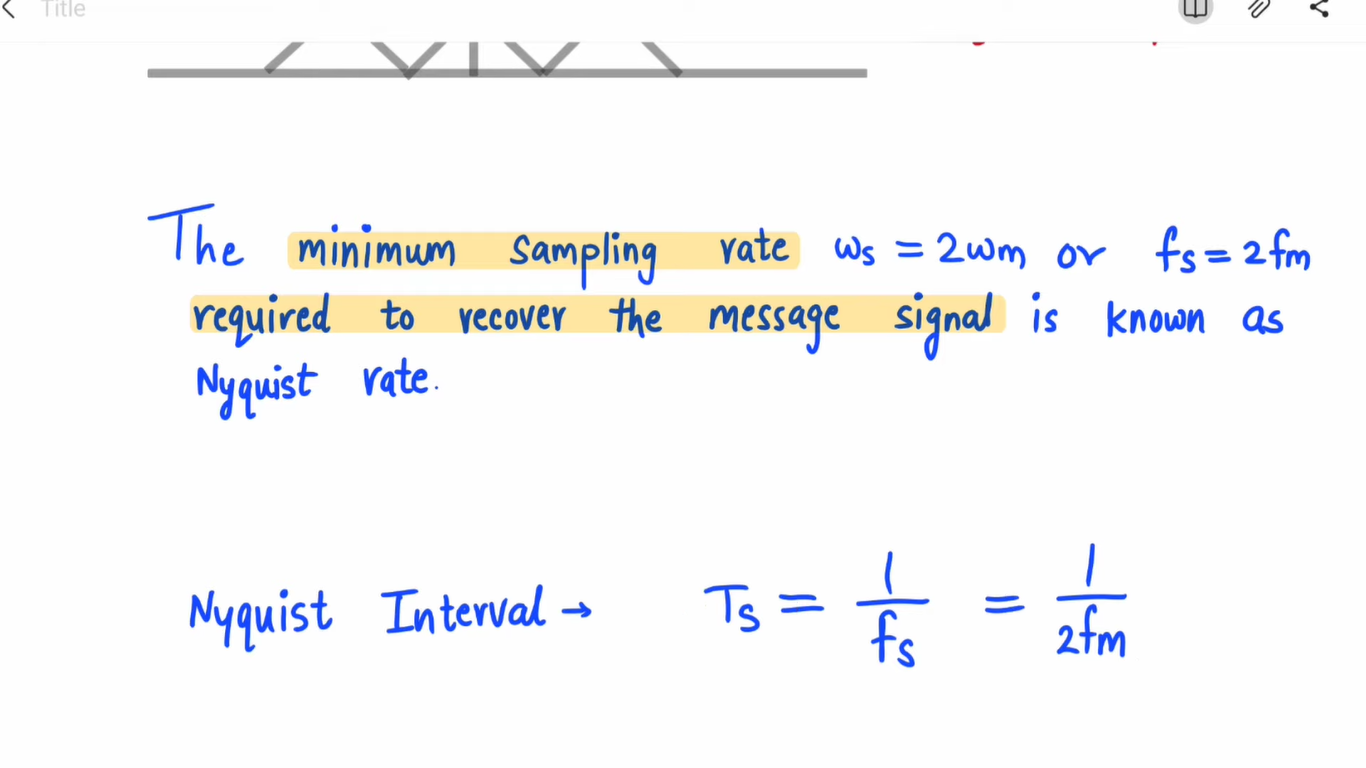 Title
The minimum sampling rate ωs = 2ωm or fs = 2fm
required to recover the message signal is known as
Nyquist rate.
Nyquist Interval → Ts = 1/fs = 1/2fm